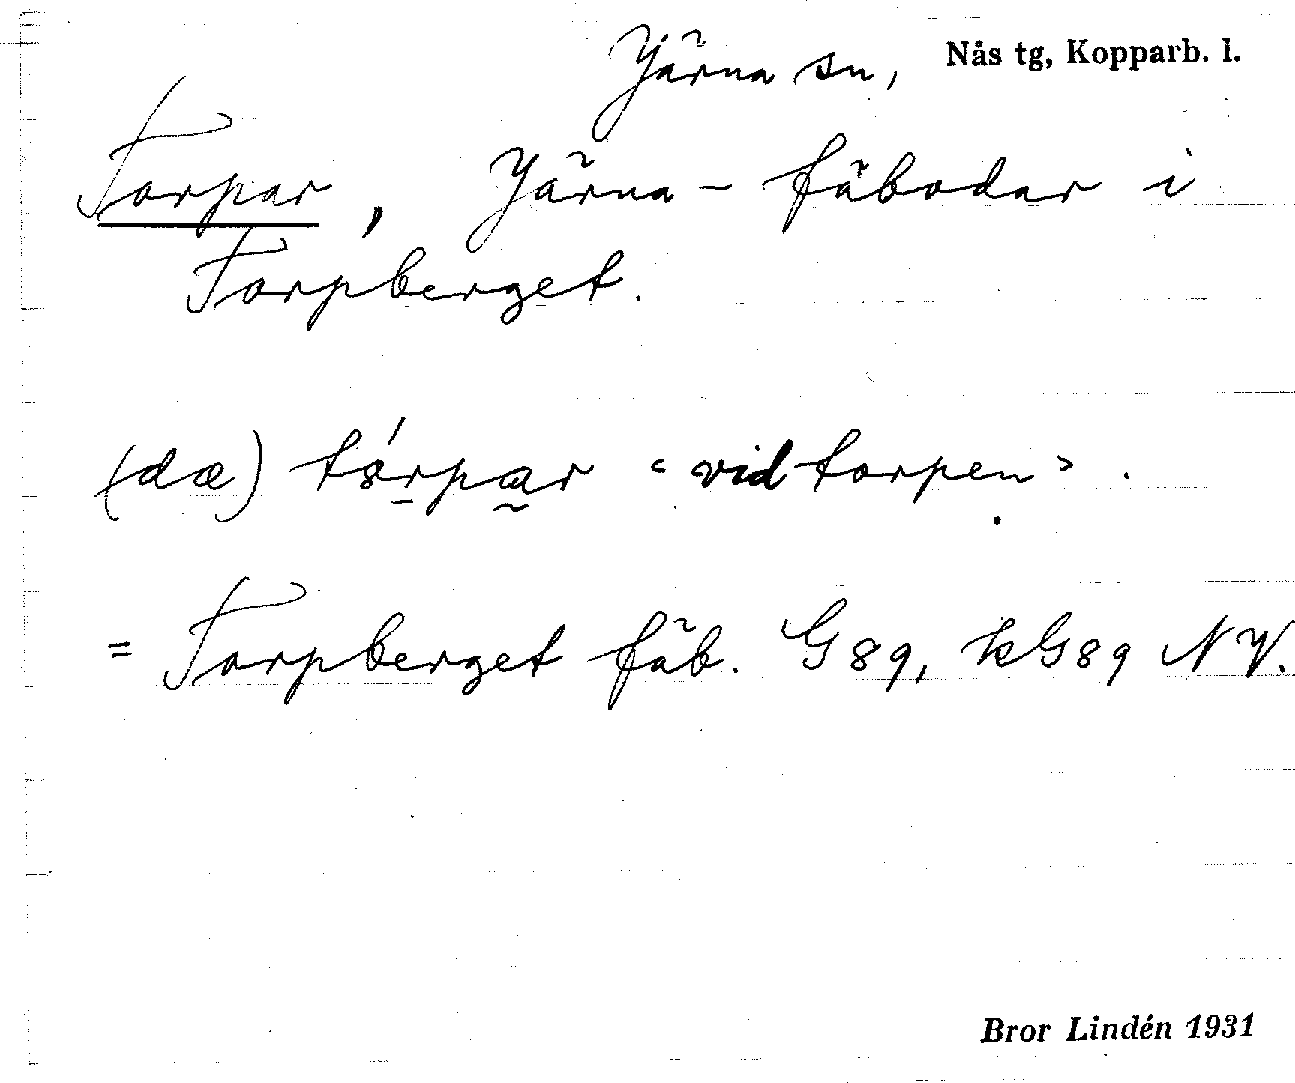 Järna sn, Nås tg, Kopparb. l.
Torpar, Järna-fäbodar i
Torpberget.
(dæ) tórpar "vid torpen".
= Torpberget fäb. G89, kG89 NV.
Bror Lindén 1931